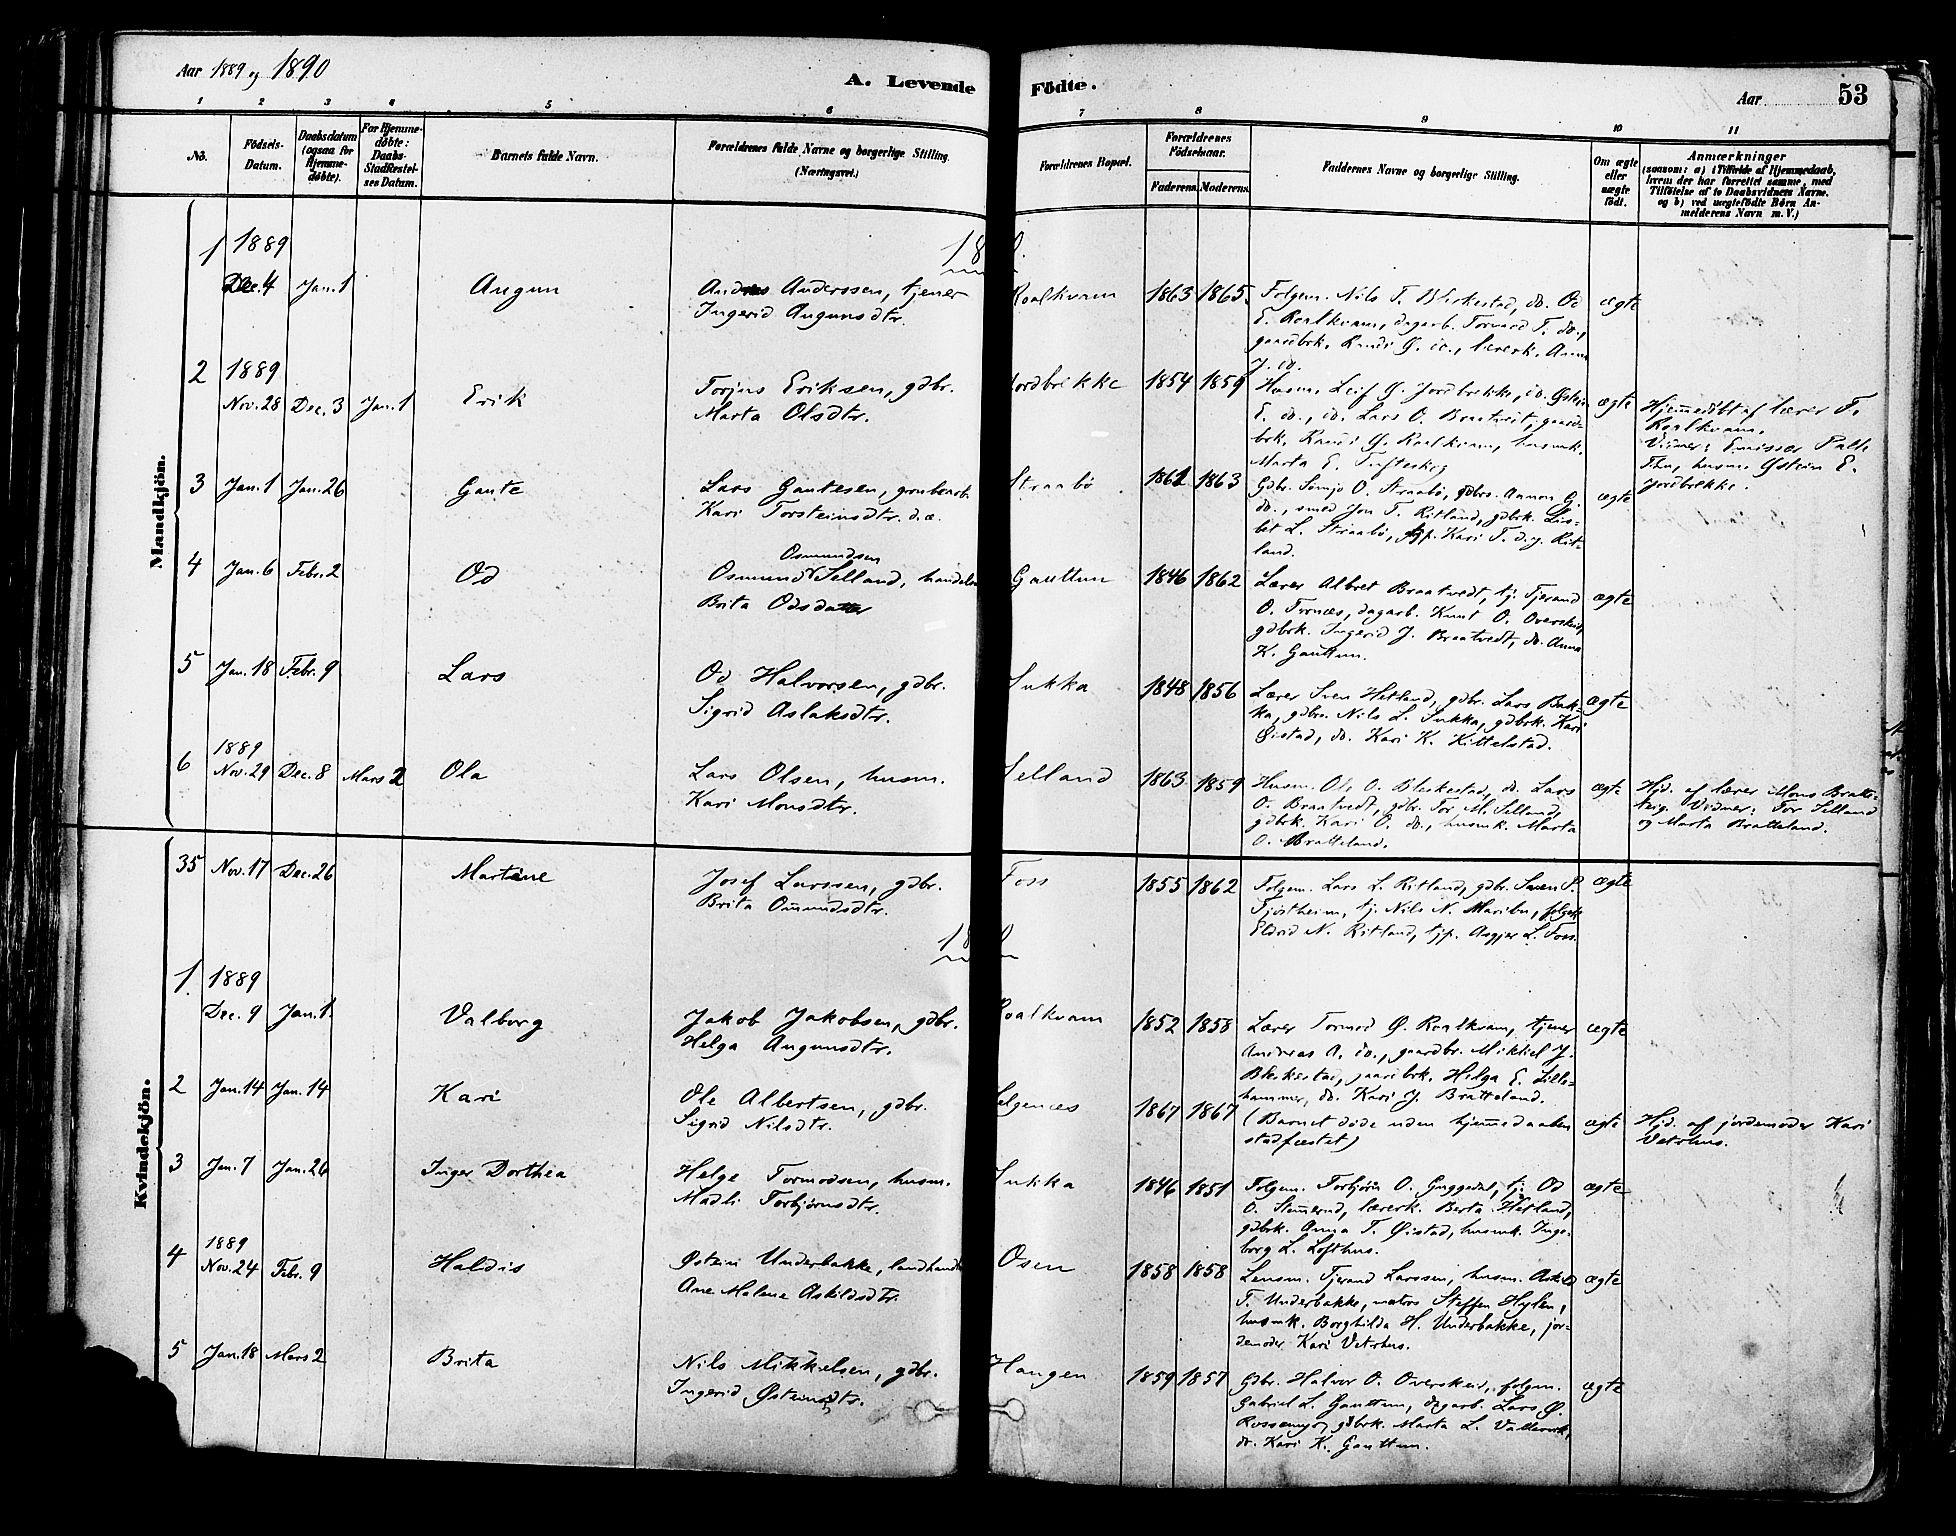 Aar 1889 og 1890
A. Levende Födte.
Aar 53
1 2 3 4 5 6 7 8 9 10 11
No.
Födsels-
Datum.
Daabsdatum
(ogsaa for
Hjemme-
döbte).
For Hjemme-
döbte:
Daabs-
Stadfæstel-
ses Datum.
Barnets fulde Navn.
Forældrenes fulde Navne og borgerlige Stilling.
(Næringsvei.)
Forældrenes Bopæl.
Forældrenes
Födselsaar.
Faderens. Moderens.
Faddernes Navne og borgerlige Stilling.
Om ægte
eller
uægte
födt.
Anmærkninger
(saasom: a) i Tilfælde af Hjemmedaab,
hvem der har forrettet samme, med
Tilföielse af to Daabsvidners Navne.
og b) ved uægtefödte Börn An-
melderens Navn m. V.)
Mandkjön.
1 1889
Dec. 4 Jan. 1 Augun
Andreas Anderssen, tjener
Ingerid Augunsdtr.
Roalkvam 1863 1865
Folgem. Nils T. Bleskestad, do. Od
E. Roalkvam, dagarb. Tormod T. do.,
gaardbrk. Randi Ø. do., lærerk. Anna
J. do.
ægte
2 1889
Nov. 28 Dec. 3 Jan. 1 Erik
Torjus Eriksen, gdbr.
Marta Olsdtr.
Jordbrekke 1854 1859
Husm. Leif Ø. Jordbrekke, do. Østein
E. do., do. Lars O. Braatveit, gaard-
brk. Randi Ø. Roalkvam, husmk.
Marta E. Tufteskog
ægte
Hjemmedöbt af lærer T.
Roalkvam.
Vidner: Emissær Palle
husm. Østein E.
Jordbrekke.
3 Jan. 1 Jan. 26 Gaute
Lars Gautesen, grubearb.
Kari Torsteinsdtr. d.æ.
Straabø 1861 1863
Gdbr. Sømje O. Straabø, gdbrs. Aamon G.
do., smed Jon T. Ritland, gdbrk. Lis-
bet L. Straabø, tjp. Kari T. d.y. Rit-
land.
ægte
4 Jan. 6 Febr. 2 Od
Osmundsen
Osmund Selland, handels
Brita Odsdatter
Gauttun 1846 1862
Lærer Albret Braatvedt, tj. Tjerand
O. Tornes, dagarb. Knut O. Overskeid,
gdbrk. Ingerid J. Braatvedt, do. Anna
K. Gauttun.
ægte
5 Jan. 18 Febr. 9 Lars
Od Halvorsen, gdbr.
Sigrid Aslaksdtr.
Sukka 1848 1856
Lærer Sven Hetland, gdbr. Lars Bak-
ka, gdbrs. Nils L. Sukka, gdbrk. Kari
Øistad, do. Kari K. Kittelstad.
ægte
6 1889
Nov. 29 Dec. 8 Mars 2 Ola
Lars Olsen, husm.
Kari Monsdtr.
Selland 1863 1859
Husm. Ole O. Bleskestad, do. Lars
O. Braatvedt, gdbr. Tor M. Selland,
gdbrk. Kari O. do., husmk. Marta
O. Bratteland.
ægte
Hjd. af lærer Mons Bratte-
teig. Vidner: Tor Selland
og Marta Bratteland.
Kvindekjön.
35 Nov. 17 Dec. 26 Martine
Josef Larssen, gdbr.
Brita Omundsdtr.
Foss 1855 1862
Folgem. Lars L. Ritland, gdbr. Sven P.
Tjøstheim, tj. Nils N. Maribu, folgek.
Eldrid N. Ritland, tjp. Asgjer L. Foss.
ægte
1. 1889
Dec. 9 Jan. 1. Valborg
Jakob Jakobsen, gdbr.
Helga Augunsdtr.
Roalkvam 1852 1858
Lærer Tormod Ø. Roalkvam, tjener
Andreas A. do., gaardbr. Mikkel J.
Bleskestad, gaardbrk. Helga E. Lille-
hammer, do. Kari J. Bratteland.
ægte
2 Jan. 14 Jan. 14 Kari
Ole Albertsen, gdbr.
Sigrid Nilsdtr.
Helgenæs 1867 1867
(Barnet døde uden hjemmedaaben
stadfæstet)
ægte
Hjd. af jordemoder Kari
Vetrhus.
3 Jan. 7 Jan. 26 Inger Dorthea
Helge Tormodsen, husm.
Madli Torbjørnsdtr.
Sukka 1846 1851
Folgem. Torbjørn O. Guggedal, tj. Od
O. Stemerud, lærerk. Berta Hetland,
gdbrk. Anna T. Øistad, husmk. Inge-
borg L. Lofthus.
ægte
4 1889
Nov. 24 Febr. 9 Haldis
Østein Underbakke, landhandl
Ane Malene Askildsdtr.
Osen 1858 1858
Lensm. Tjerand Larssen, husm. Askild
T. Underbakke, matros Steffen Hylen,
husmk. Borghilda H. Underbakke, jor-
demoder Kari Vetrhus.
ægte
5 Jan. 18 Mars 2 Brita
Nils Mikkelsen, gdbr.
Ingerid Østeinsdtr.
Haugen 1859 1857
Gdbr. Halvor O. Overskeid, folgem.
Gabriel L. Gauttun, dagarb. Lars Ø.
Rossemyr, gdbrk. Marta L. Vallervik,
do. Kari K. Gauttun.
ægte